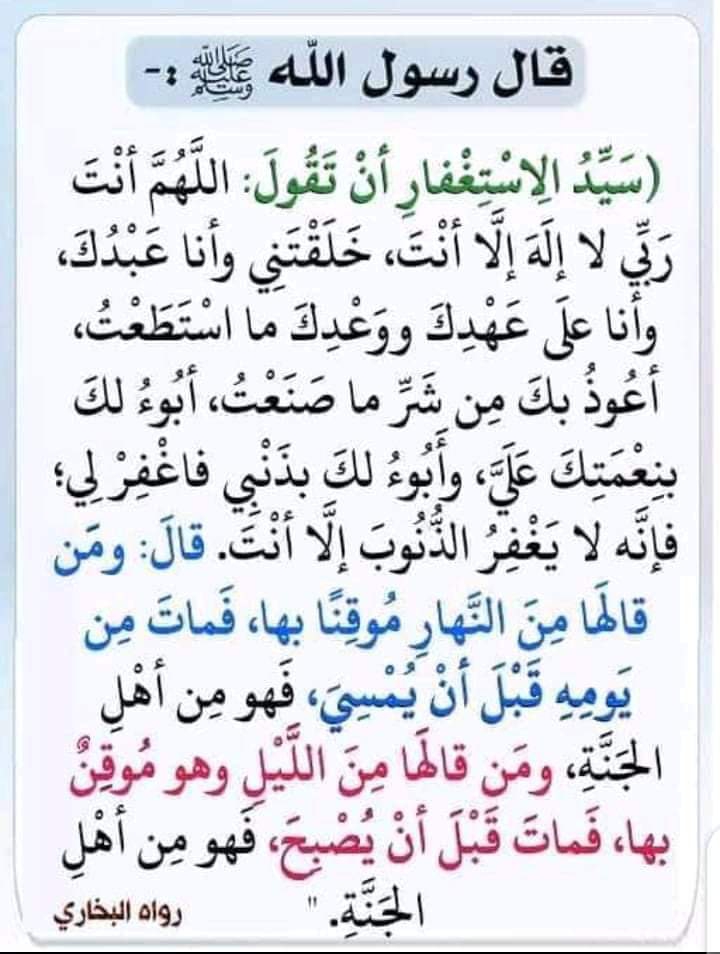 قال رسول الله ﷺ :-
(سَيِّدُ الِاسْتِغْفارِ أنْ تَقُولَ: اللَّهُمَّ أنْتَ
رَبِّي لا إلَهَ إلَّا أنْتَ، خَلَقْتَنِي وأنا عَبْدُكَ،
وأنا علَى عَهْدِكَ ووَعْدِكَ ما اسْتَطَعْتُ،
أعُوذُ بكَ مِن شَرِّ ما صَنَعْتُ، أبُوءُ لكَ
بنِعْمَتِكَ عَلَيَّ، وأَبُوءُ لكَ بذَنْبِي فاغْفِرْ لِي؛
فإنَّه لا يَغْفِرُ الذُّنُوبَ إلَّا أنْتَ. قالَ: ومَن
قالَهَا مِنَ النَّهارِ مُوقِنًا بها، فَماتَ مِن
يَومِهِ قَبْلَ أنْ يُمْسِيَ، فَهو مِن أهْلِ
الجَنَّةِ، ومَن قالَهَا مِنَ اللَّيْلِ وهو مُوقِنٌ
بها، فَماتَ قَبْلَ أنْ يُصْبِحَ، فَهو مِن أهْلِ
الجَنَّةِ. " رواه البخاري